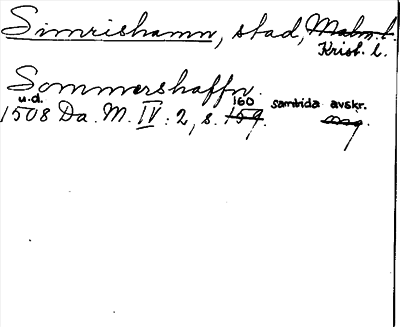 Simrishamn, stad, Malm. l.
Krist. l.
Sommershaffn.
u.d. 160 samtida avskr.
1508 Da. M. IV: 2, s. 159. orig.